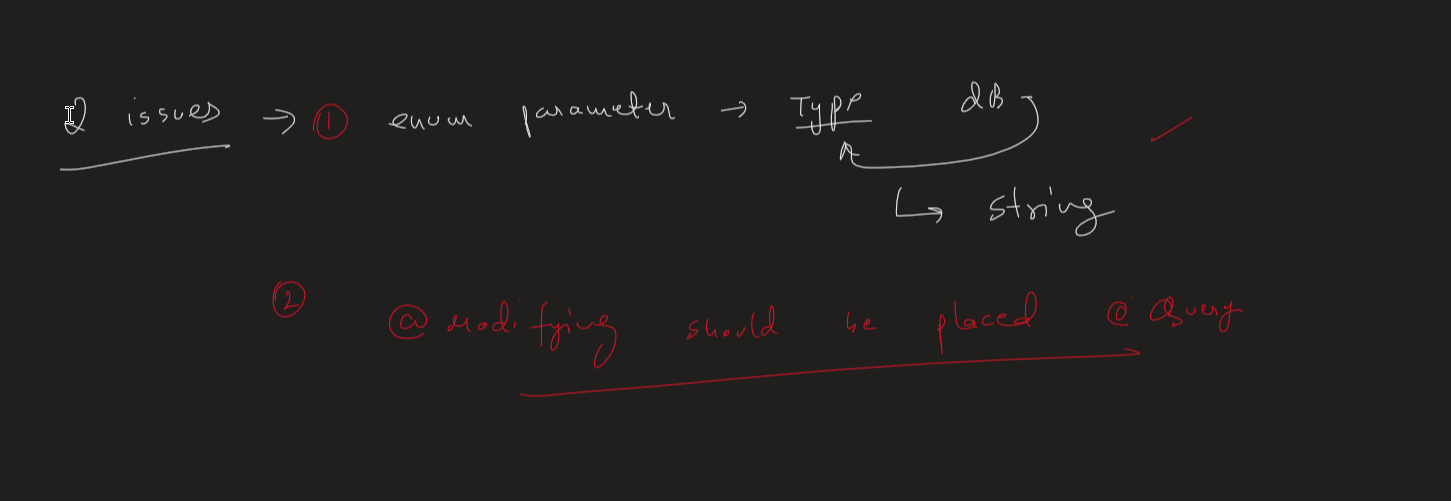 2 issues → ① enum parameter → Type dB
↳ string
② @modifying should be placed @Query